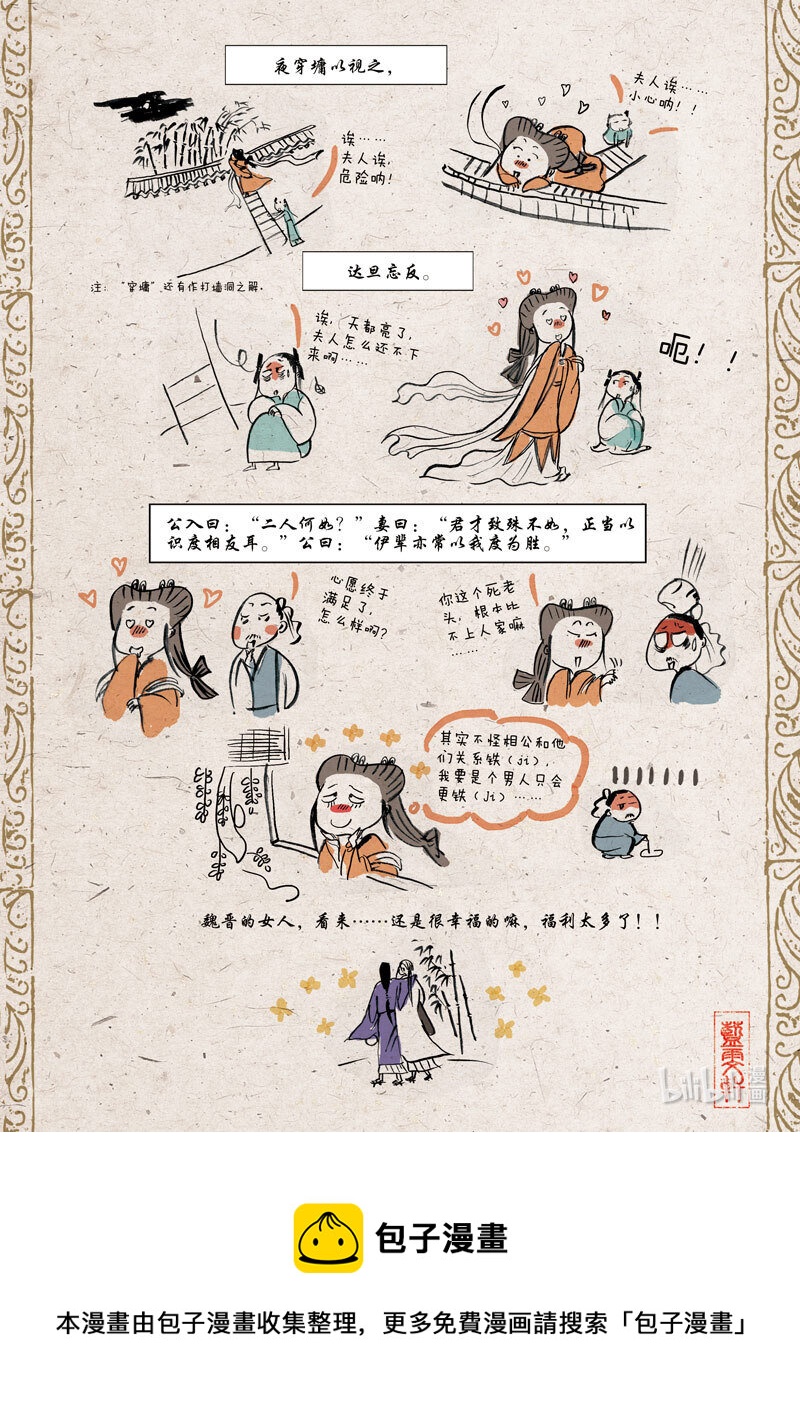 夜穿墉以视之，
诶……
夫人诶，
危险呐！
夫人诶……
小心呐！！
达旦忘反。
注：“穿墉”还有作打墙洞之解。
诶，天都亮了，
夫人怎么还不下
来啊……
呃！！
公入曰：“二人何如？”妻曰：“君才致殊不如，正当以
识度相友耳。”公曰：“伊辈亦常以我度为胜。”
心愿终于
满足了，
怎么样啊？
你这个死老
头，根本比
不上人家嘛
……
其实不怪相公和他
们关系铁（jī），
我要是个男人只会
更铁（Jī）……
魏晋的女人，看来……还是很幸福的嘛，福利太多了！！
bilibili
漫画
包子漫畫
本漫畫由包子漫畫收集整理，更多免費漫画請搜索「包子漫畫」